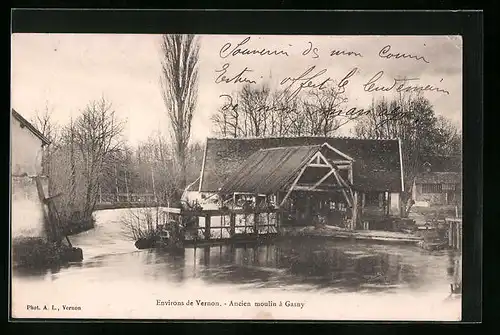 Souvenir de mon Cousin
offert le lendemain
de
Environs de Vernon. - Ancien moulin à Gasny
Phot. A. L., Vernon